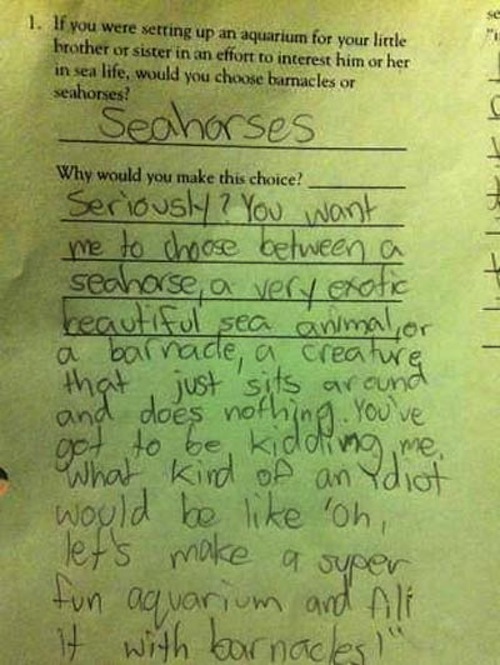 1. If you were setting up an aquarium for your little
brother or sister in an effort to interest him or her
in sea life, would you choose barnacles or
seahorses?
Seahorses
Why would you make this choice?
Seriously? You want
me to choose between a
seahorse, a very exotic
beautiful sea animal, or
a barnacle, a creature
that just sits around
and does nothing. You've
got to be kidding me.
What kind of an idiot
would be like 'oh,
let's make a super
fun aquarium and fill
it with barnacles!"
se
"i